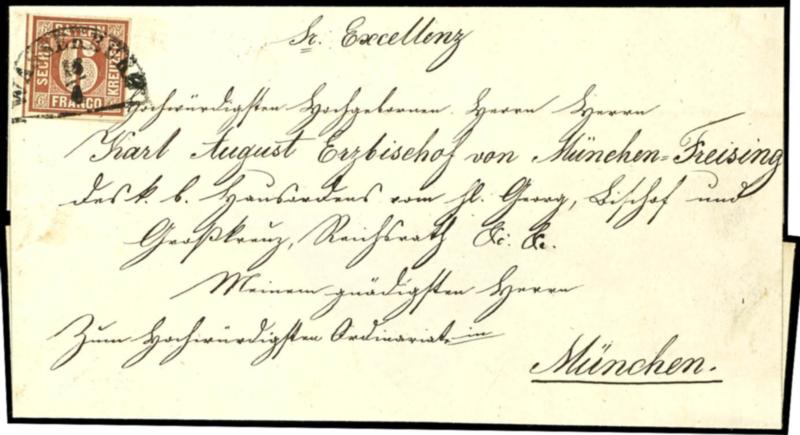 BAYERN
SECHS
6
KREUZER
FRANCO
WASSERBURG
18
Sr. Excellenz
Hochwürdigsten Hochgebornen Herrn Herrn
Karl August Erzbischof von München=Freising
des k. b. Hausordens vom hl. Georg, Bischof und
Großkreuz, Reichsrath &c. &c.
Meinem gnädigsten Herrn
Zum Hochwürdigsten Ordinariat in
München.